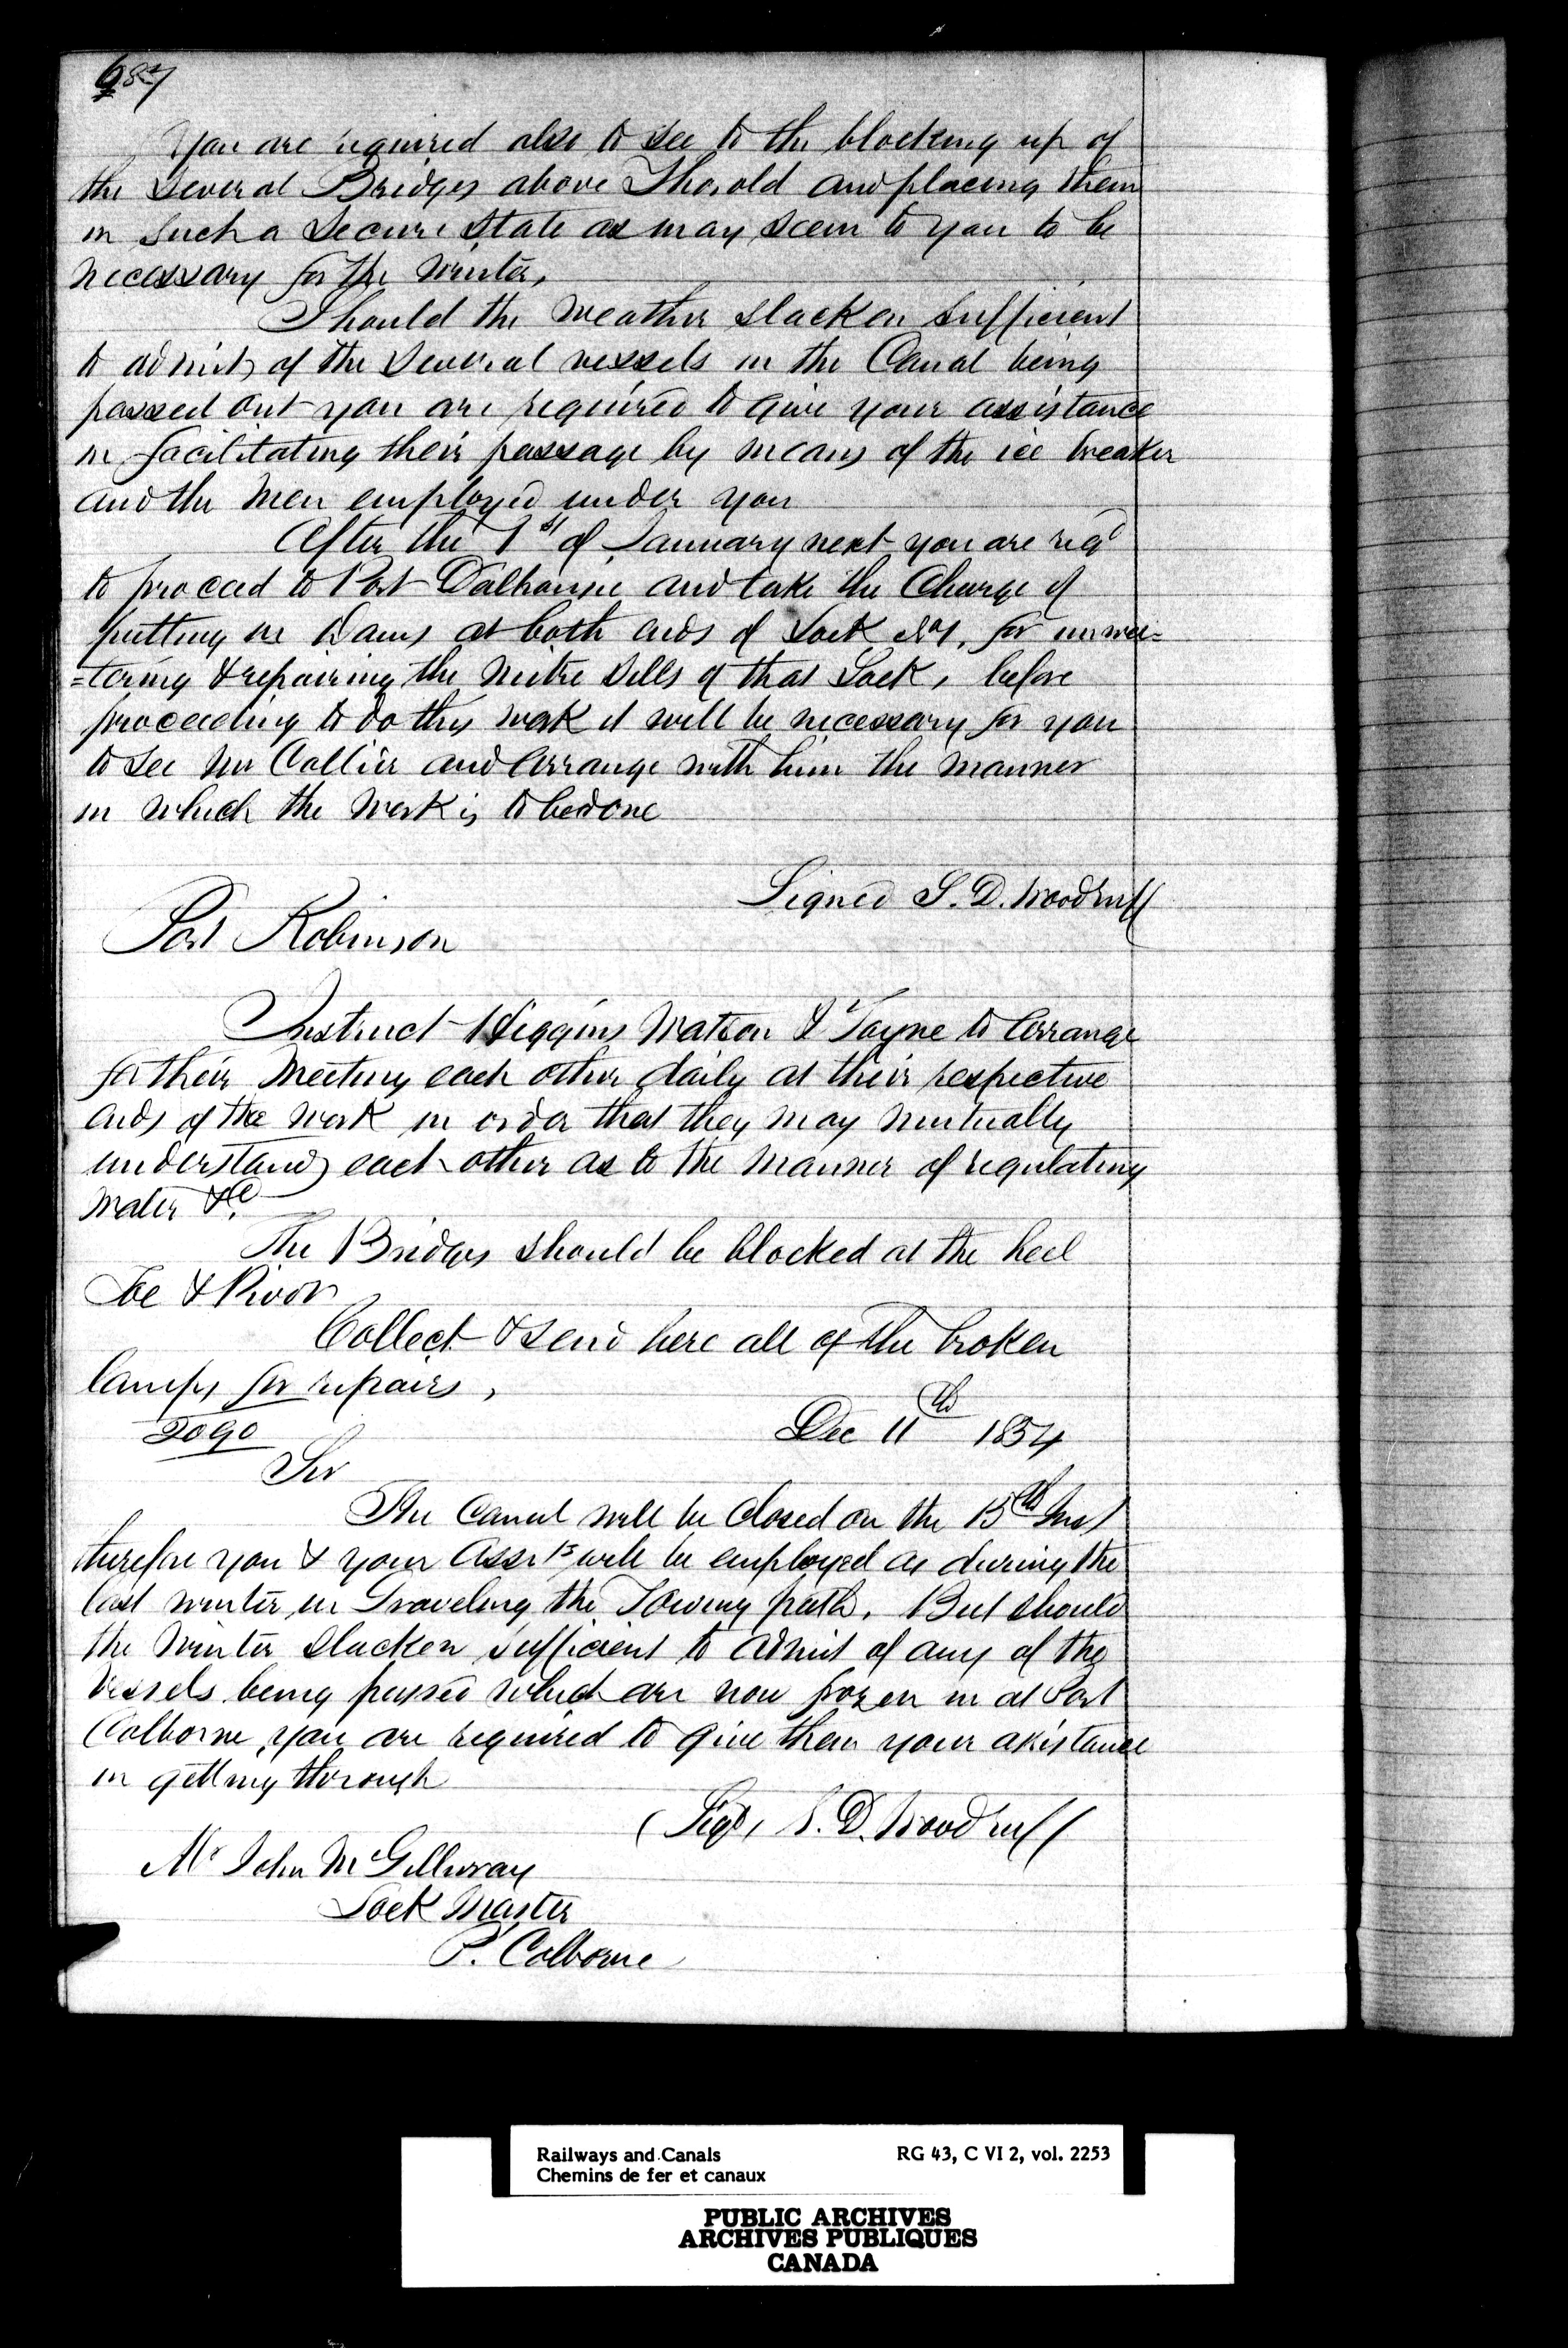 687
You are required also to see to the blocking up of
the several Bridges above Thorold and placing them
in such a secure state as may seem to you to be
necessary for the winter,
Should the weather slacken sufficient
to admit of the several vessels in the Canal being
passed out you are required to give your assistance
in facilitating their passage by means of the ice breaker
and the men employed under you
After the 1st of January next you are reqd
to proceed to Port Dalhousie and take the Charge of
putting in Dams at both ends of Lock No 1, for unwa=
=tering & repairing the mitre sills of that Lock, before
proceeding to do this work it will be necessary for you
to see Mr Collier and arrange with him the manner
in which the work is to be done
Signed S. D. Woodruff
Port Robinson
Instruct Higgins Watson & Jayne to arrange
for their meeting each other daily at their respective
ends of the work in order that they may mutually
understand each other as to the manner of regulating
water &c.
The Bridges should be blocked at the heel
Toe & Pivot
Collect & send here all of the broken
lamps for repairs,
2090
Dec 11th 1854
Sir
The Canal will be closed on the 15th Inst
therefore you & your Assts will be employed as during the
last winter in Graveling the Towing path. But should
the winter slacken sufficient to admit of any of the
vessels being passed which are now frozen in at Port
Colborne, you are required to give them your assistance
in getting through
(Sigd, S. D. Woodruff
Mr John McGillivray
Lock Master
P. Colborne
Railways and Canals
Chemins de fer et canaux
RG 43, C VI 2, vol. 2253
PUBLIC ARCHIVES
ARCHIVES PUBLIQUES
CANADA